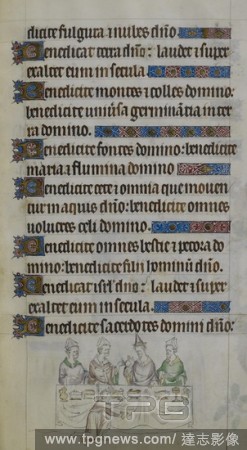 dicite fulgura & nubes dño.
Benedicat terra dñm: laudet & super
exaltet eum in secula
Benedicite montes & colles domino:
benedicite universa germinãtia in ter
ra domino.
Benedicite fontes domino: benedicite
maria & flumina domino
Benedicite cete & omnia que moven
tur in aquis dño: benedicite omnes
volucres celi domino.
Benedicite omnes bestie & pecora do
mino: benedicite filii hominũ dño.
Benedicat isrl dñm: laudet & super
exaltet eum in secula.
Benedicite sacerdotes domini dño:
TPG
www.tpgnews.com/ 達志影像